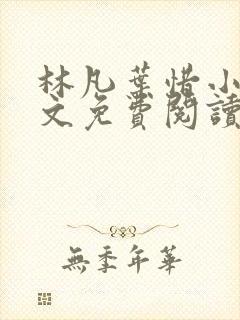 林凡葉惜小
文免費閱讀
無季年華